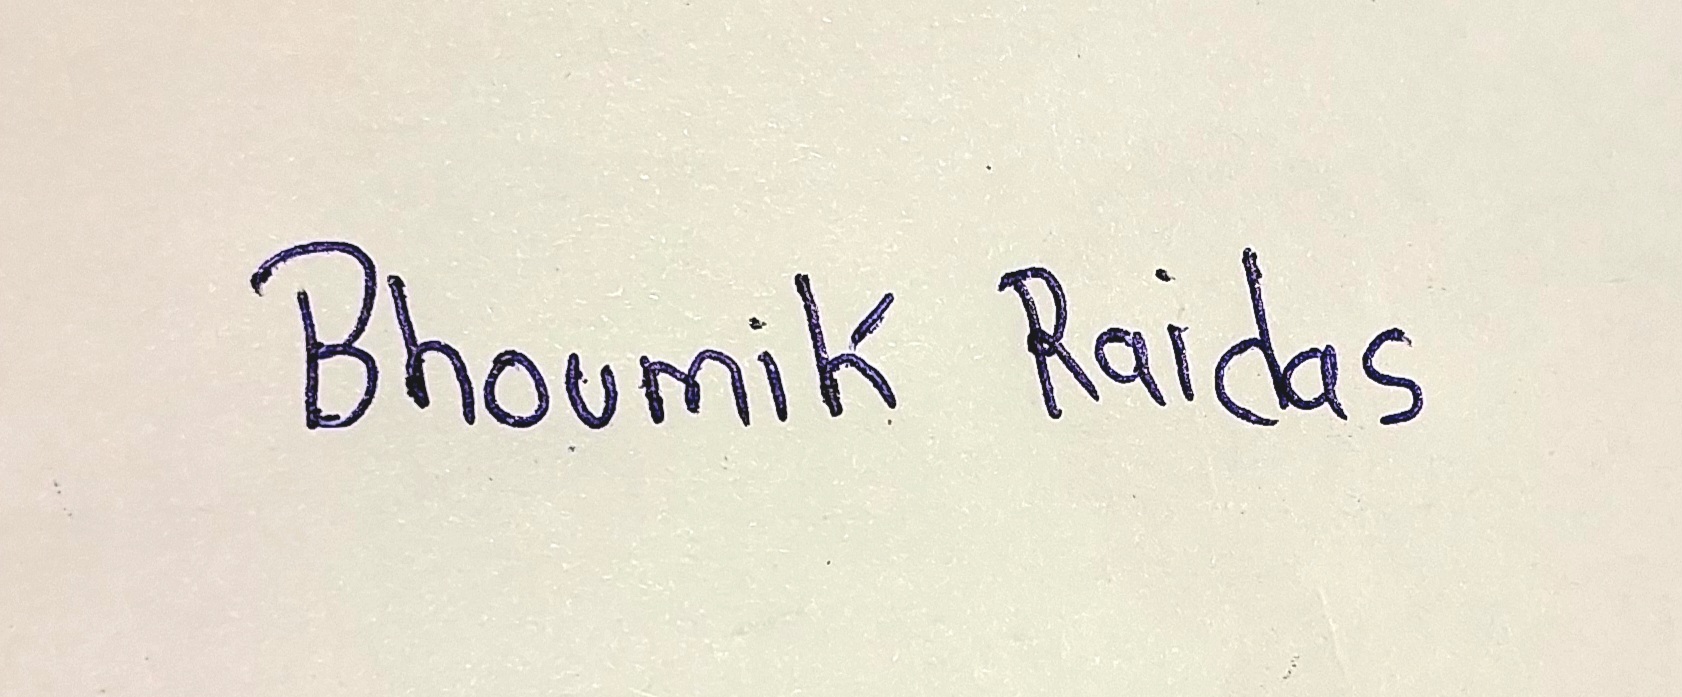 Bhoumik Raidas